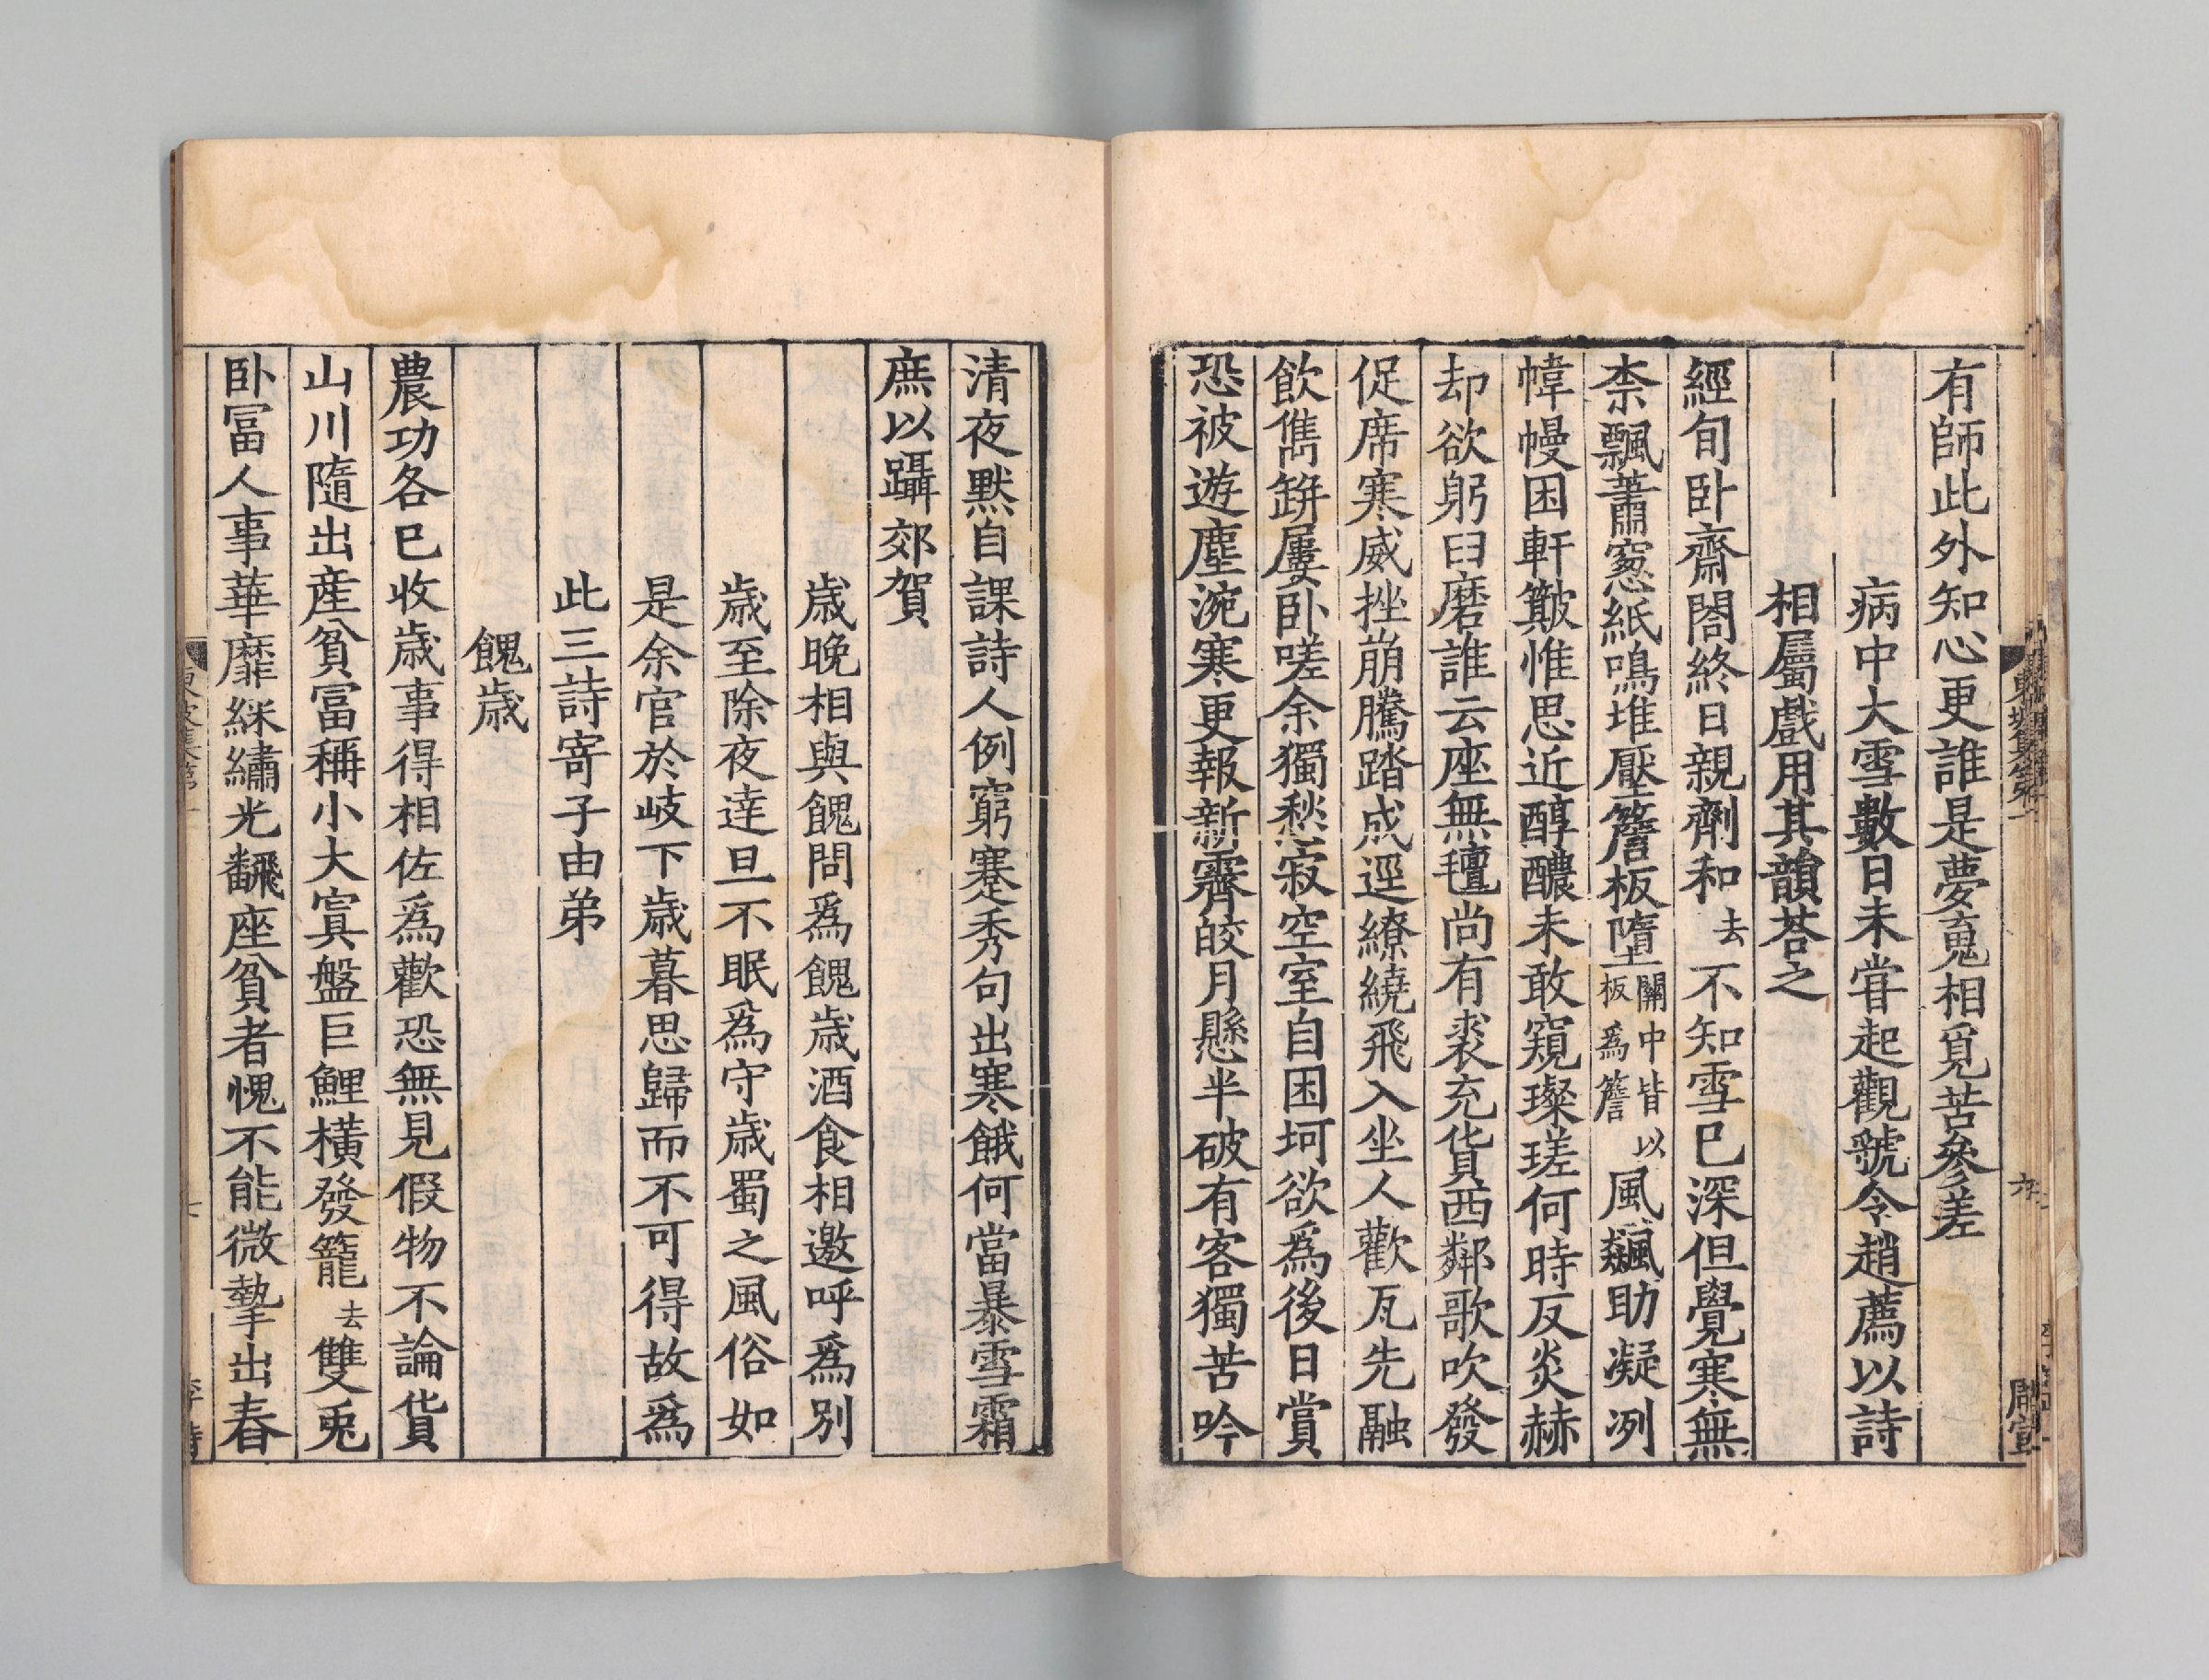 有師此外知心更誰是夢䰟相覓苦參差
病中大雪數日未甞起觀虢令趙薦以詩
相屬戲用其韻荅之
經旬卧齋閤終日親劑和去不知雪巳深但覺寒無
柰飄蕭窻紙鳴堆壓簷板墮關中皆以板爲簷風飈助凝冽
幃幔困軒簸惟思近醇醲未敢窺璨瑳何時反炎赫
却欲躬臼磨誰云座無氊尚有裘充貨西鄰歌吹發
促席寒威挫崩騰踏成逕繚繞飛入坐人歡瓦先融
飲儁缾屢卧嗟余獨愁寂空室自困坷欲爲後日賞
恐被遊塵涴寒更報新霽皎月懸半破有客獨苦吟
清夜默自課詩人例窮蹇秀句出寒餓何當暴雪霜
庶以躡郊賀
歲晚相與餽問爲餽歲酒食相邀呼爲別
歲至除夜逹旦不眠爲守歲蜀之風俗如
是余官於岐下歲暮思歸而不可得故爲
此三詩寄子由弟
餽歲
農功各巳收歲事得相佐爲歡恐無見假物不論貨
山川隨出産貧富稱小大寘盤巨鯉橫發籠去雙兎
卧冨人事華靡綵繡光飜座貧者愧不能微摯出舂